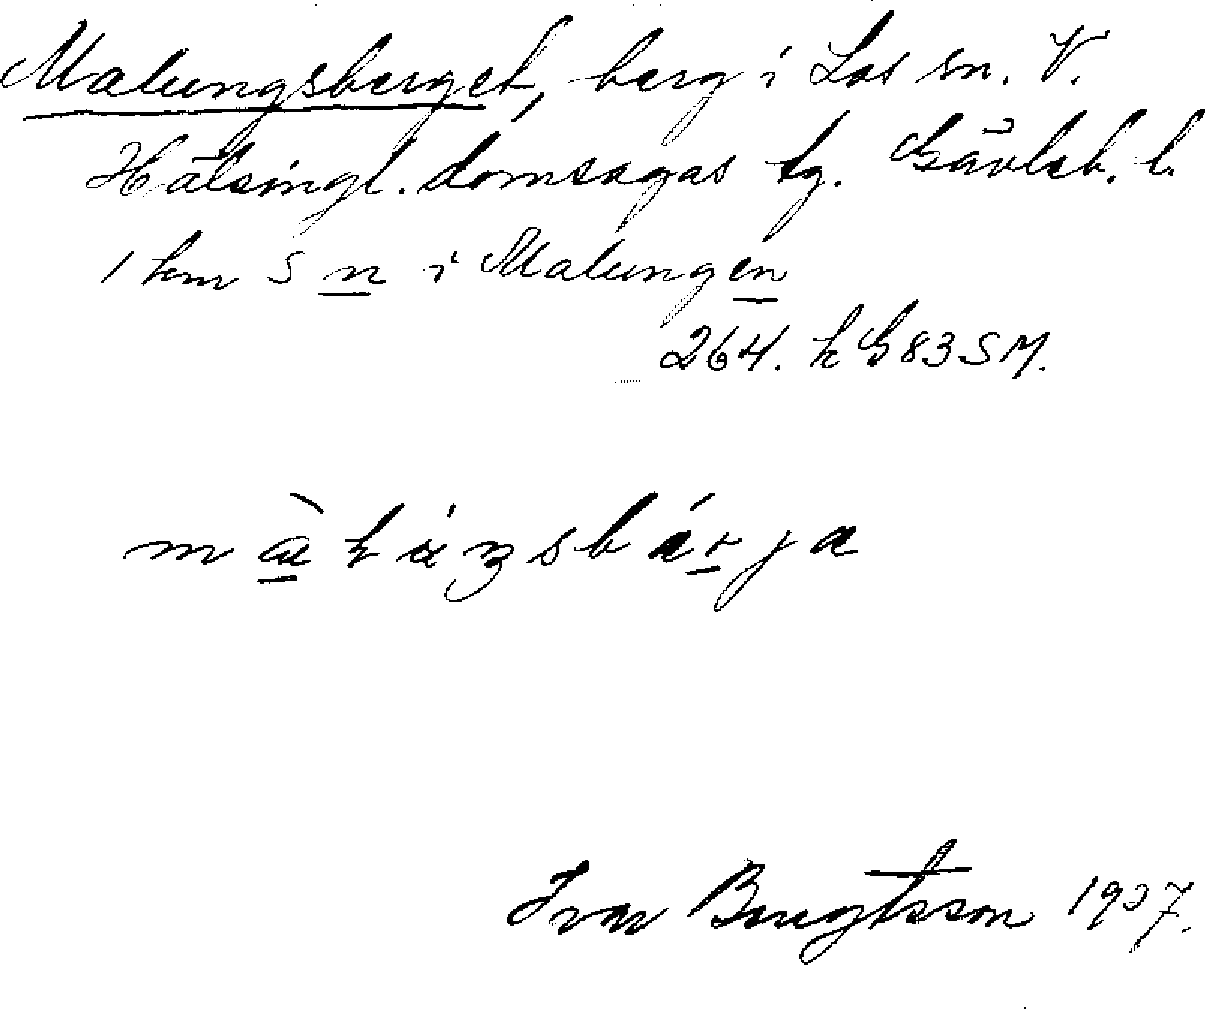 Malungsberget, berg i Los sn. V.
Hälsingl. domsagas tg. Gävleb. l.
1 km S n i Malungen
264. k G 83 SM.
Ivar Bengtsson 1937.